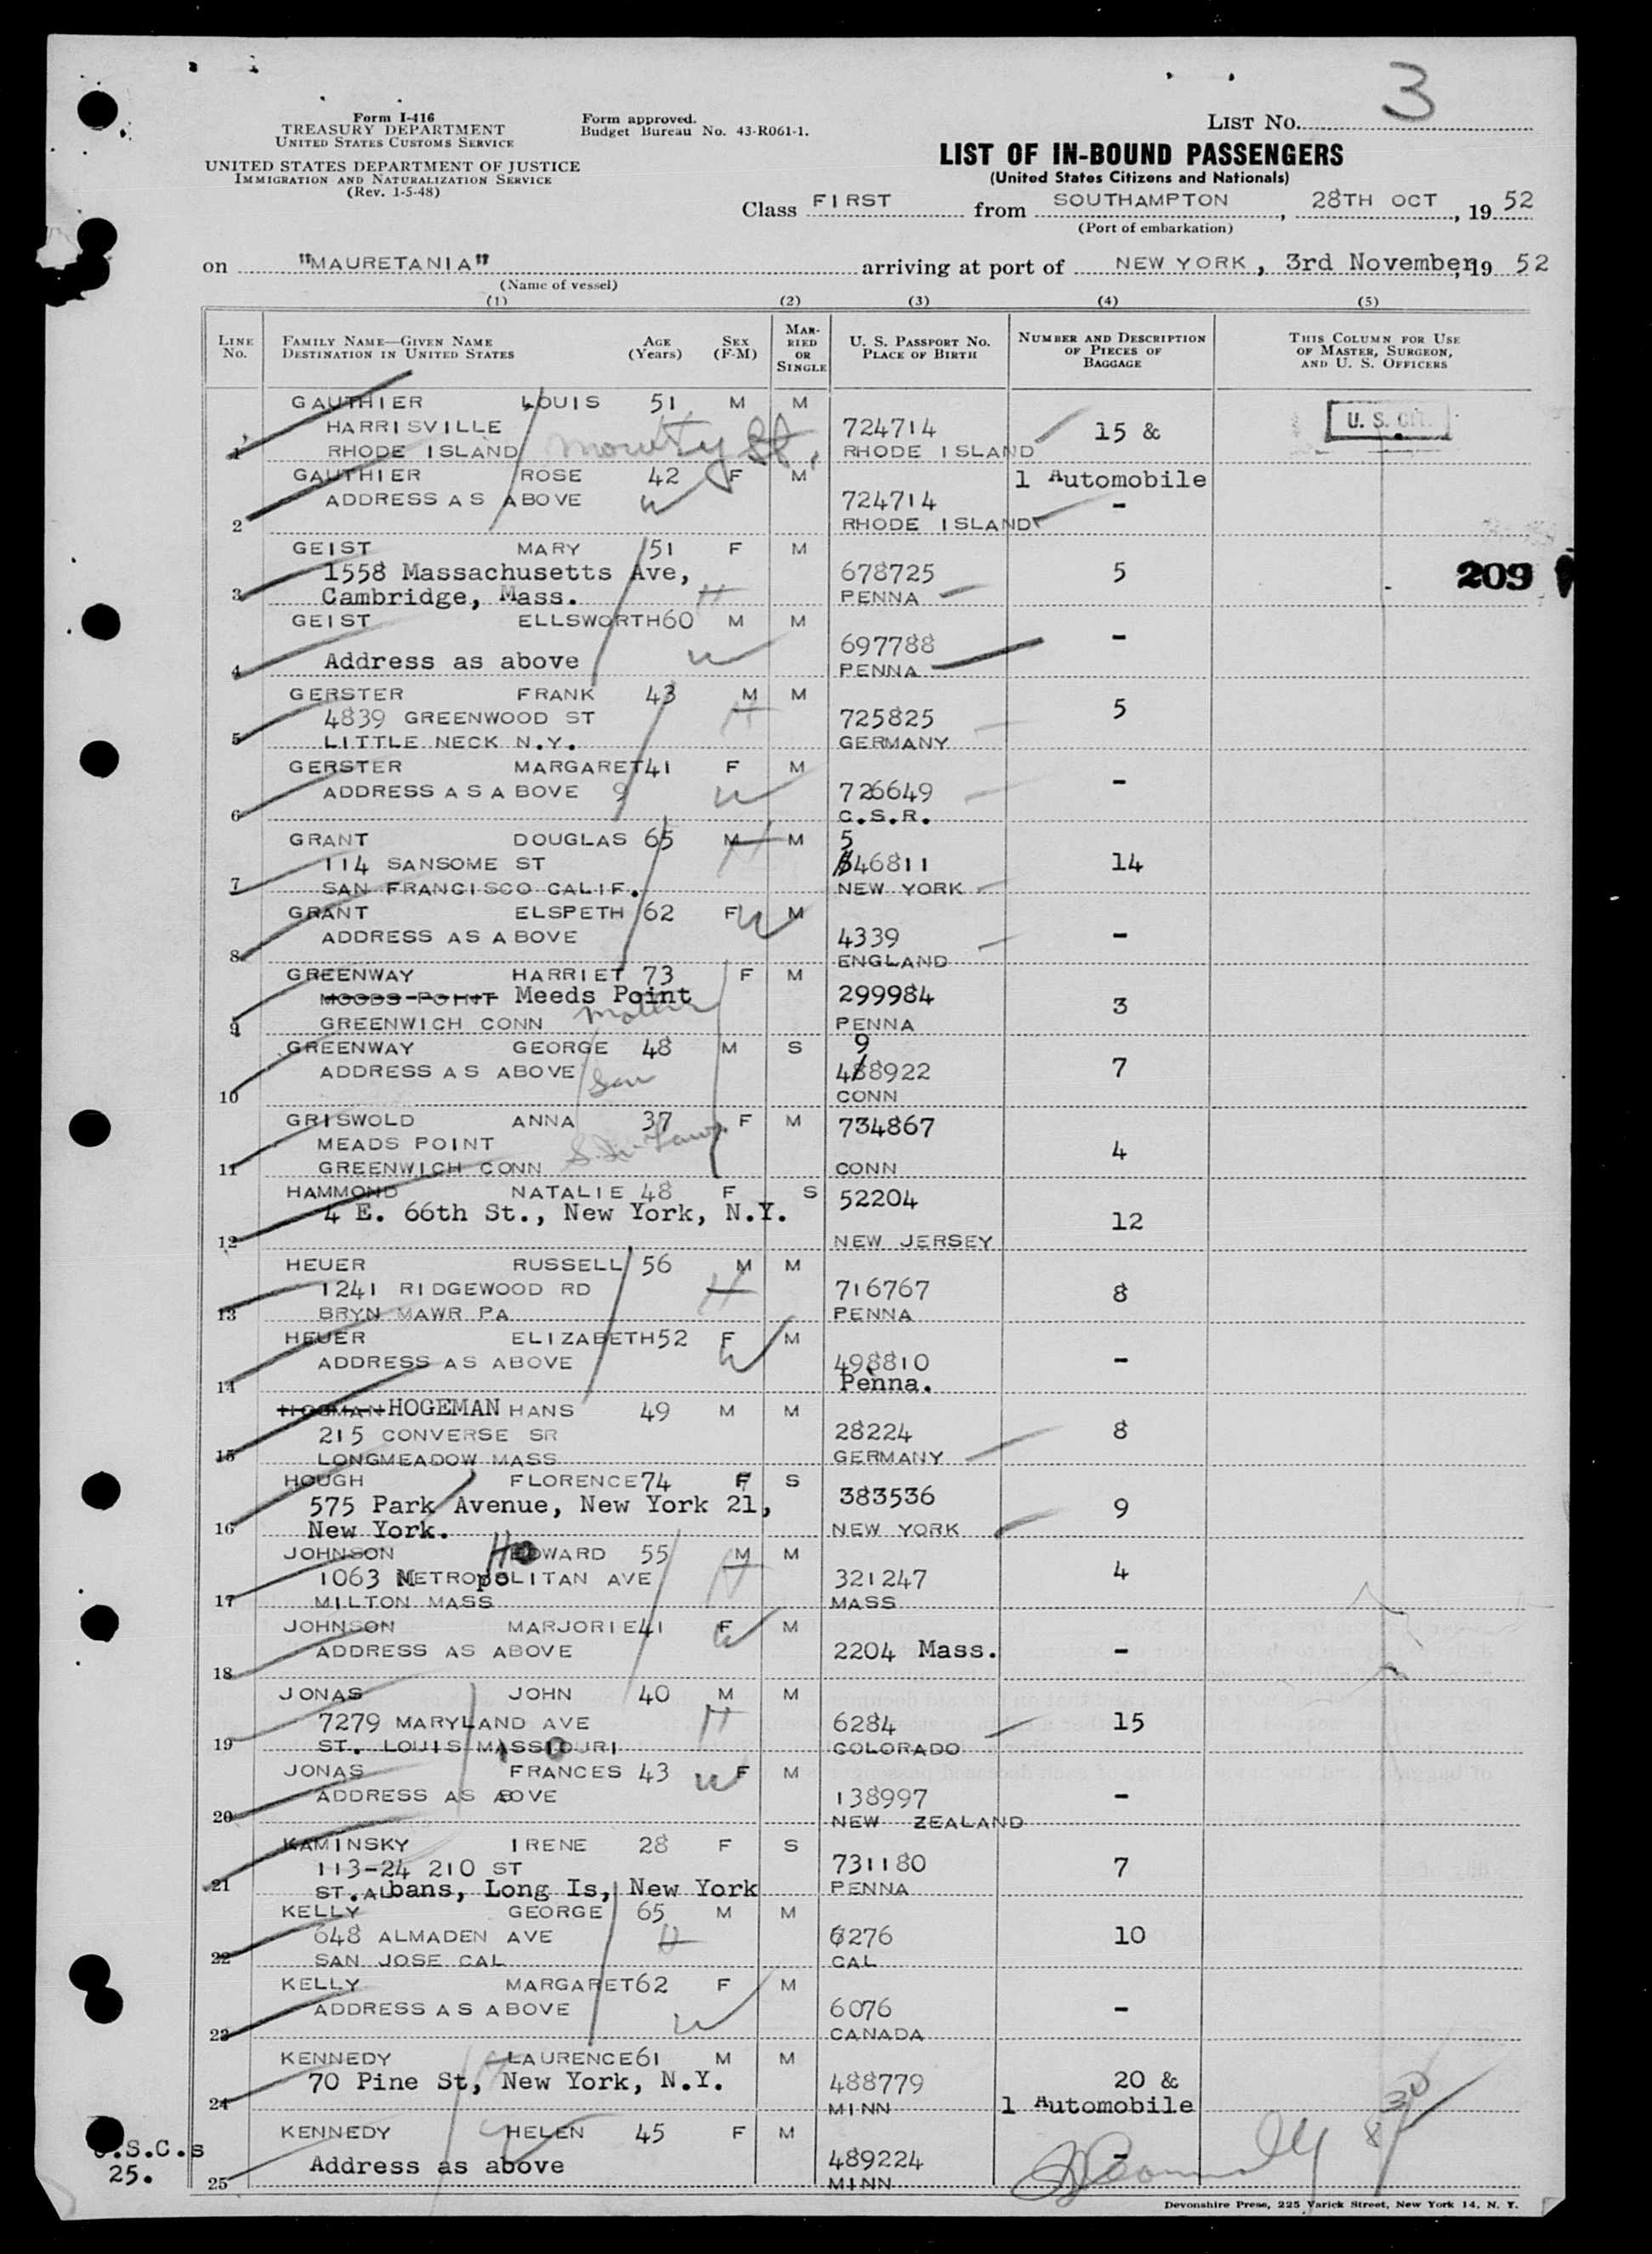 3
Form I-416
TREASURY DEPARTMENT
UNITED STATES CUSTOMS SERVICE
UNITED STATES DEPARTMENT OF JUSTICE
IMMIGRATION AND NATURALIZATION SERVICE
(Rev. 1-5-48)
Form approved.
Budget Bureau No. 43-R061-1.
LIST NO.
LIST OF IN-BOUND PASSENGERS
(United States Citizens and Nationals)
Class FIRST from SOUTHAMPTON, 28TH OCT, 19 52
(Port of embarkation)
on "MAURETANIA" arriving at port of NEW YORK, 3rd November, 19 52
(Name of vessel)
(1) (2) (3) (4) (5)
LINE NO. FAMILY NAME—GIVEN NAME DESTINATION IN UNITED STATES AGE (Years) SEX (F-M) MARRIED OR SINGLE U. S. PASSPORT NO. PLACE OF BIRTH NUMBER AND DESCRIPTION OF PIECES OF BAGGAGE THIS COLUMN FOR USE OF MASTER, SURGEON, AND U. S. OFFICERS
GAUTHIER LOUIS 51 M M
HARRISVILLE 724714 15 & U. S. CIT.
1 RHODE ISLAND St. RHODE ISLAND
GAUTHIER ROSE 42 F M 1 Automobile
ADDRESS AS ABOVE W 724714 -
2 RHODE ISLAND
GEIST MARY 51 F M
1558 Massachusetts Ave, 678725 5 209
3 Cambridge, Mass. H PENNA
GEIST ELLSWORTH 60 M M
697788 -
4 Address as above W PENNA
GERSTER FRANK 43 M M
4839 GREENWOOD ST H 725825 5
5 LITTLE NECK N.Y. GERMANY
GERSTER MARGARET 41 F M
ADDRESS AS ABOVE 9 W 726649 -
6 C.S.R.
GRANT DOUGLAS 65 M H M 5
114 SANSOME ST 646811 14
7 SAN FRANCISCO CALIF. NEW YORK
GRANT ELSPETH 62 F W M
ADDRESS AS ABOVE 4339 -
8 ENGLAND
GREENWAY HARRIET 73 F M
MOODS POINT Meeds Point 299984 3
9 GREENWICH CONN Mother PENNA
GREENWAY GEORGE 48 M S 9
ADDRESS AS ABOVE Son 488922 7
10 CONN
GRISWOLD ANNA 37 F M 734867
MEADS POINT 4
11 GREENWICH CONN CONN
HAMMOND NATALIE 48 F S 52204
4 E. 66th St., New York, N.Y. 12
12 NEW JERSEY
HEUER RUSSELL 56 M M
1241 RIDGEWOOD RD H 716767 8
13 BRYN MAWR PA PENNA
HEUER ELIZABETH 52 F M
ADDRESS AS ABOVE W 498810 -
14 Penna.
HOGMAN HOGEMAN HANS 49 M M
215 CONVERSE SR 28224 8
15 LONGMEADOW MASS GERMANY
HOUGH FLORENCE 74 F S
575 Park Avenue, New York 21, 383536 9
16 New York. NEW YORK
JOHNSON HOWARD 55 M M
1063 METROPOLITAN AVE H 321247 4
17 MILTON MASS MASS
JOHNSON MARJORIE 41 F W M
ADDRESS AS ABOVE 2204 Mass. -
18
JONAS JOHN 40 M M
7279 MARYLAND AVE H 6284 15
19 ST. LOUIS MISSOURI COLORADO
JONAS FRANCES 43 W F M
ADDRESS AS ABOVE 138997 -
20 NEW ZEALAND
KAMINSKY IRENE 28 F S
113-24 210 ST 731180 7
21 ST. ALbans, Long Is, New York PENNA
KELLY GEORGE 65 M M
648 ALMADEN AVE H 6276 10
22 SAN JOSE CAL CAL
KELLY MARGARET 62 F M
ADDRESS AS ABOVE W 6076 -
23 CANADA
KENNEDY LAURENCE 61 M M
70 Pine St, New York, N.Y. 488779 20 &
24 MINN 1 Automobile
KENNEDY HELEN 45 F M
Address as above 489224 -
25 MINN
U.S.C.s
25.
Devonshire Press, 225 Varick Street, New York 14, N. Y.